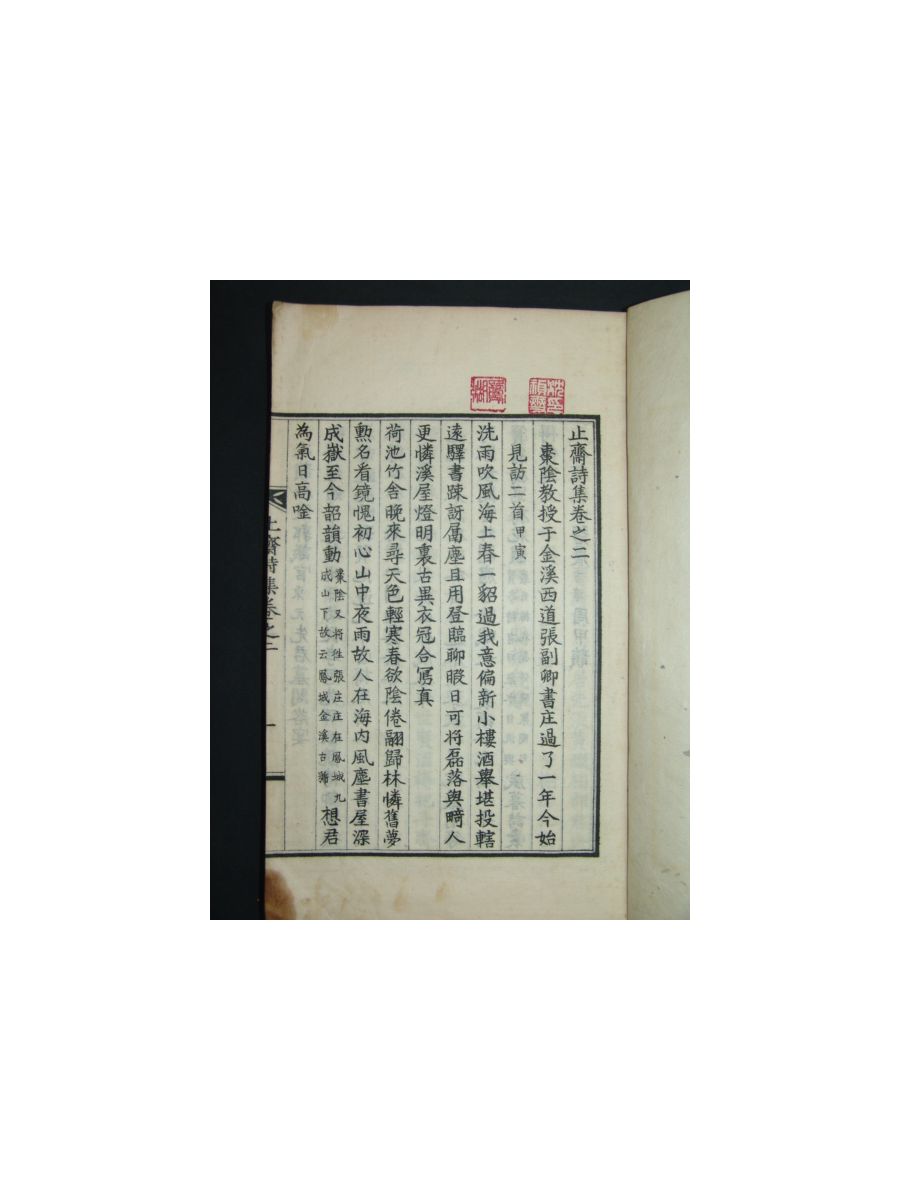 止齋詩集卷之二
棗陰教授于金溪西道張副卿書庄過了一年今始
見訪二首甲寅
洗雨吹風海上春一貂過我意偏新小樓酒擧堪投轄
遠驛書踈訝屬塵且用登臨聊暇日可将磊落與畸人
更憐溪屋燈明裏古異衣冠合寫真
荷池竹舍晚來尋天色輕寒春欲陰倦翮歸林憐舊夢
勲名看鏡愧初心山中夜雨故人在海内風塵書屋深
成嶽至今韶韻動棗陰又将往張庄庄在鳳城九成山下故云鳳城金溪古號想君
為氣日高唫
止齋詩集卷之二
一